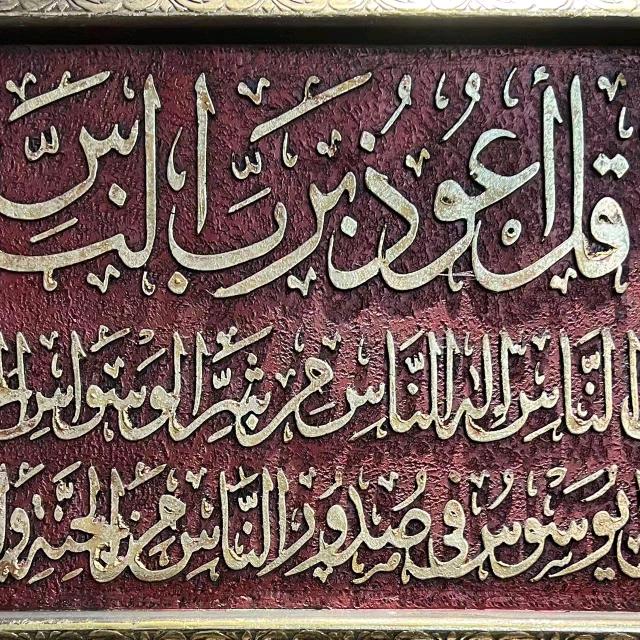 قُلْ أَعُوذُ بِرَبِّ النَّاسِ
النَّاسِ إِلَٰهِ النَّاسِ مِن شَرِّ الْوَسْوَاسِ
يُوَسْوِسُ فِي صُدُورِ النَّاسِ مِنَ الْجِنَّةِ